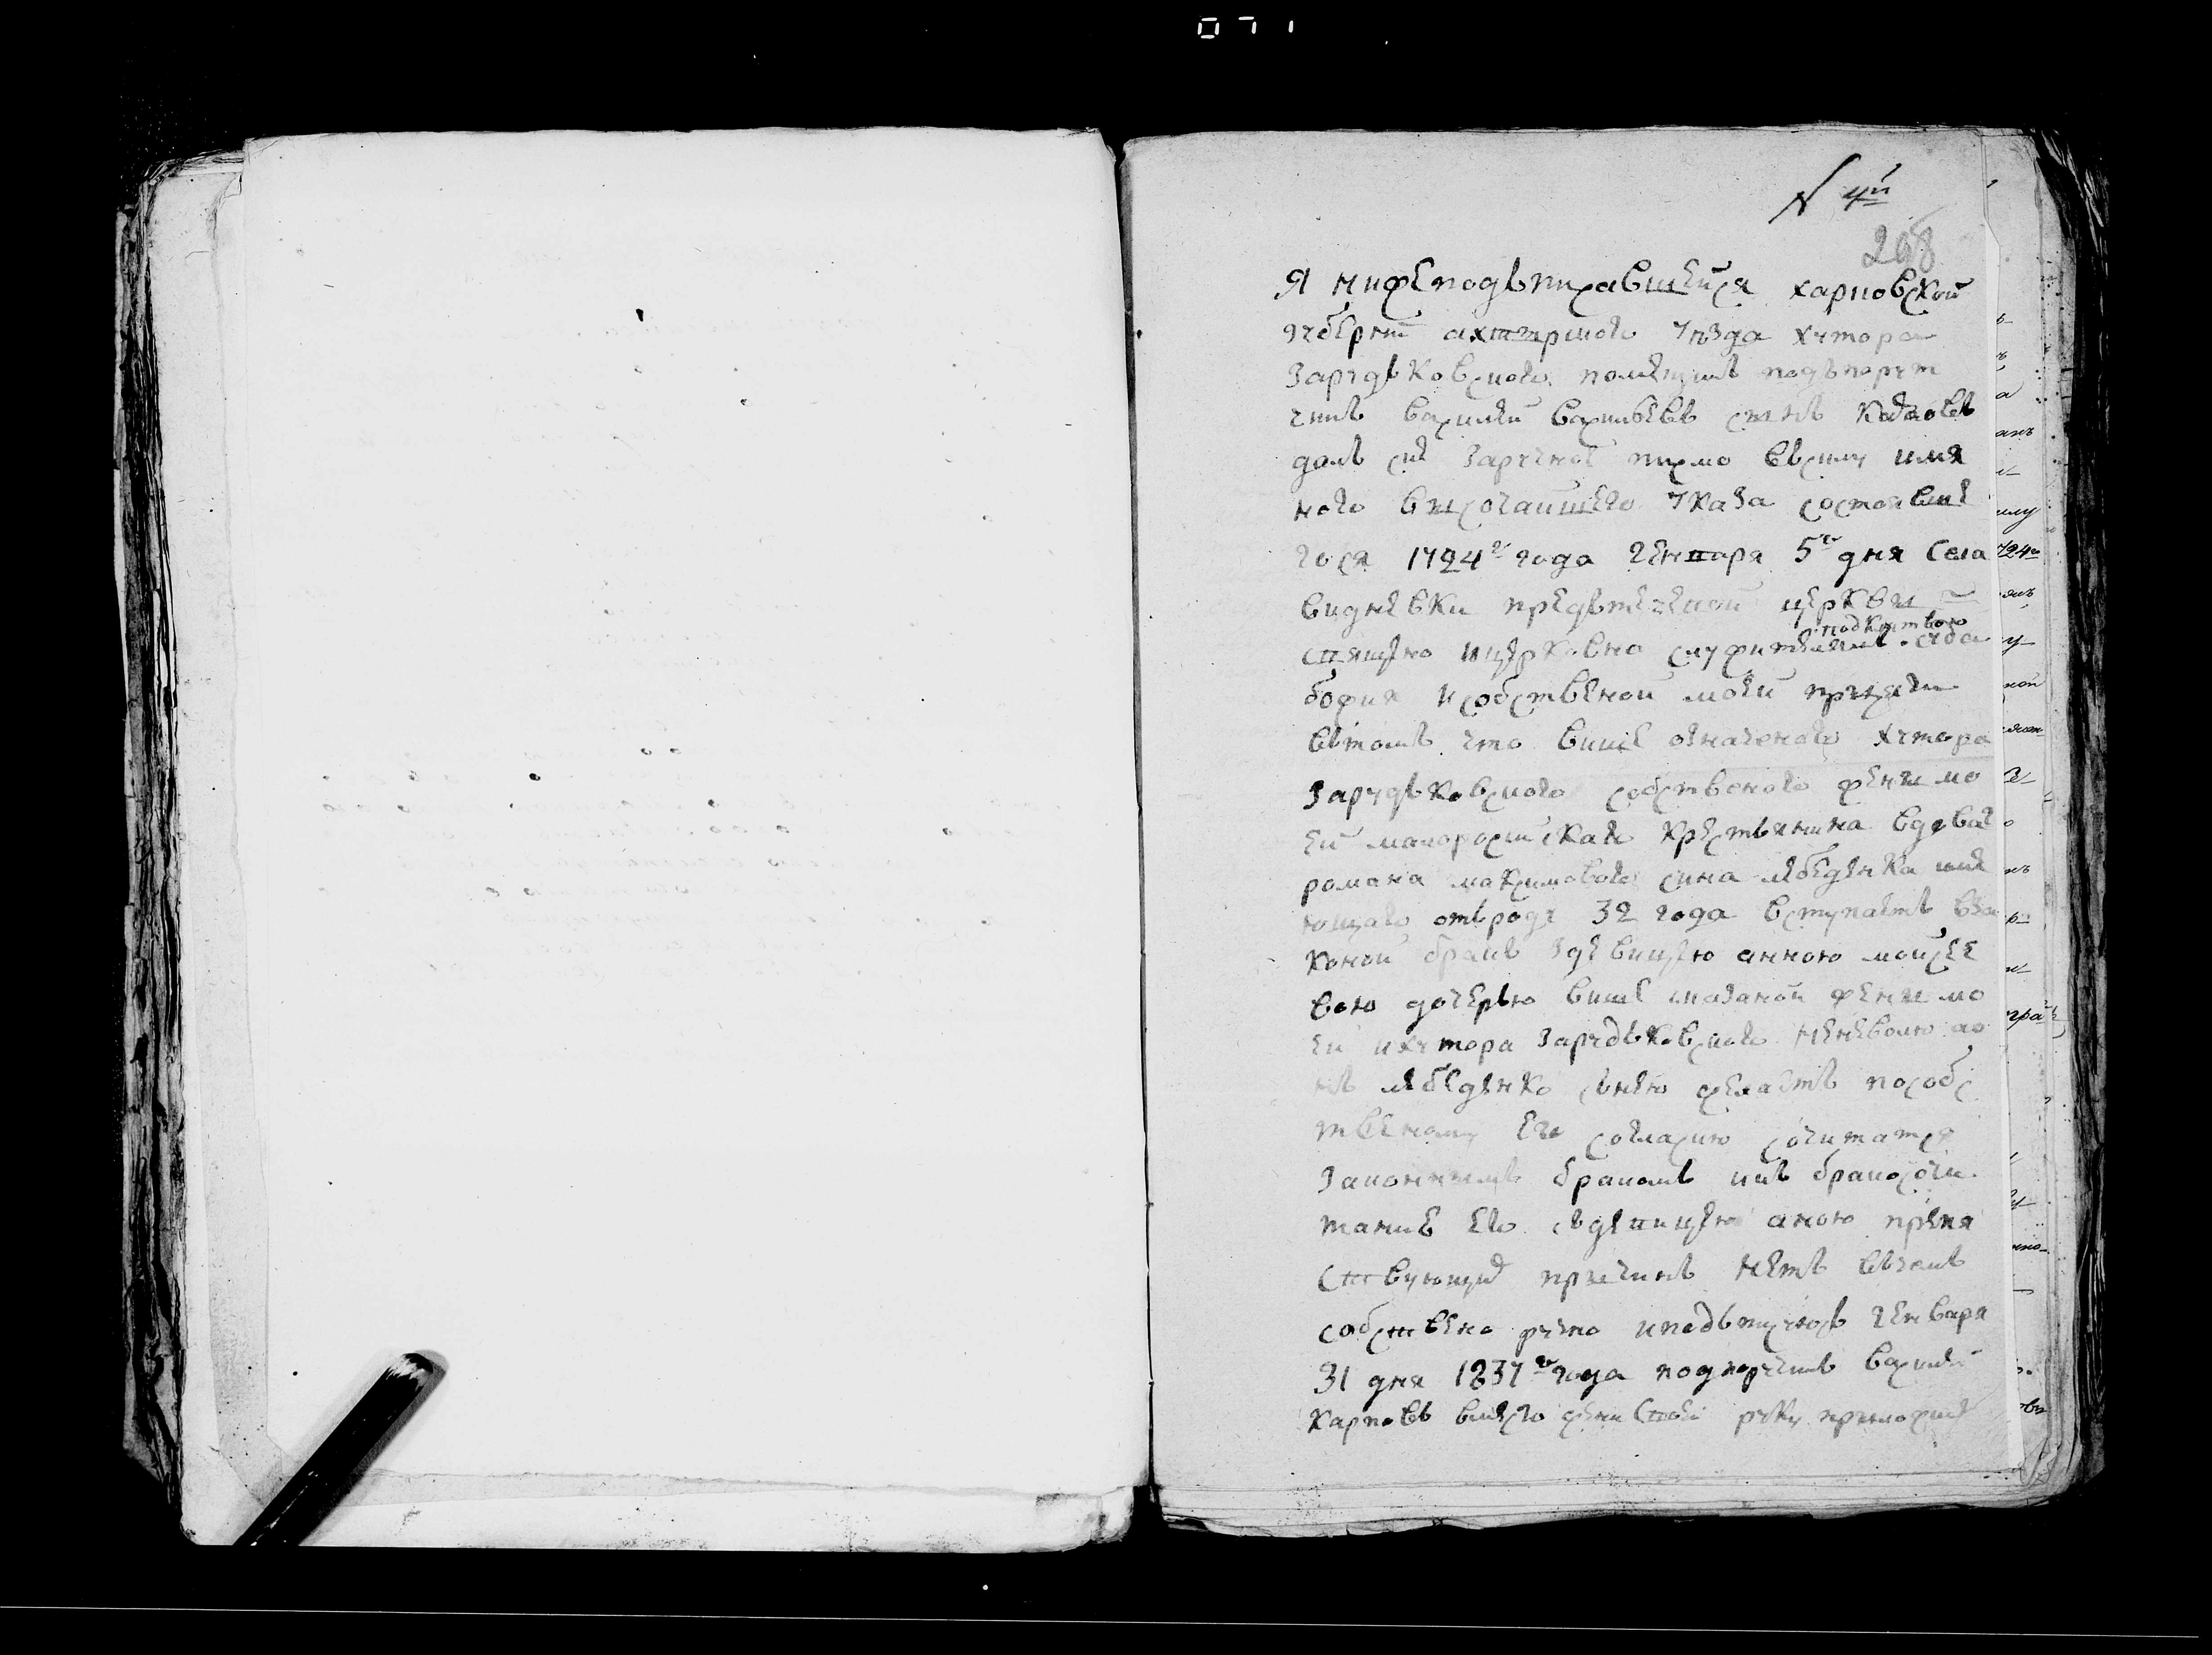 071
N 4й
268
Я нижеподъписавшейся харковской
губернии ахтырского уезда хутора
Зарудъковского помещикъ подъпорут
чикъ василей васильевъ сынъ Карповъ
далъ сие заручное писмо въсилу имя
ного высочайшего указа состоявше
гося 1724го года генваря 5го дня села
видневки предътечевой церквы
священо ицерковно служителямъ подклятвою
божия исобственой моей присяги
вътомъ что више означеного хутора
Зарудъковского собственого жены мо
ей малоросийскаго крестьянина вдоваго
романа максимового сина лебеденка име
ющаго отъроду 32 года вступаетъ вза
коной бракъ здевицею анною моисее
вою дочерью више сказаной жены мо
ей ихутора Зарудъковского неневолю ро
нъ лебеденко сънею желаетъ пособс
твеному его согласию сочитатся
Законнымъ бракомъ икъ бракосочи
танию его съдевицею аною препя
ствующей причинъ нетъ въчемъ
собствено ручно иподъписуюсь генваря
31 дня 1837го года подпоручикъ василей
Карповъ вместо жени своей руку приложилъ